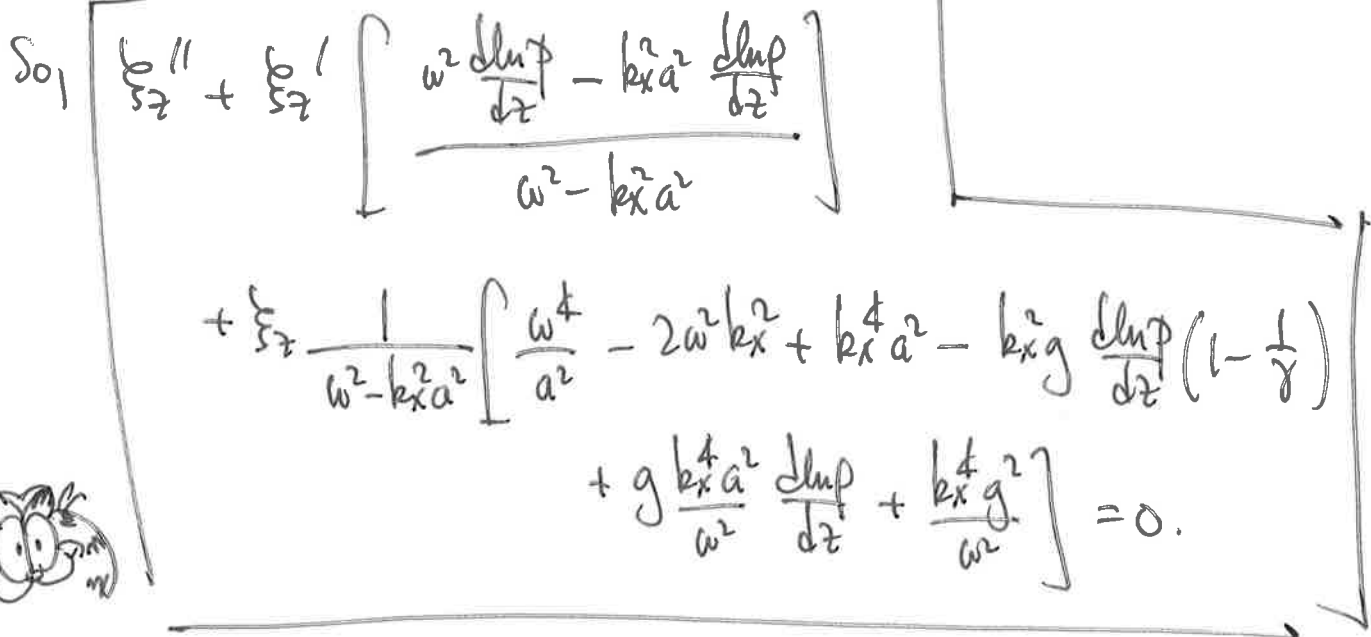 So, ξ_z'' + ξ_z' [ (ω² dlnp/dz − k_x²a² dlnρ/dz) / (ω² − k_x²a²) ]
+ ξ_z 1/(ω² − k_x²a²) [ ω⁴/a² − 2ω²k_x² + k_x⁴a² − k_x²g dlnp/dz (1 − 1/γ)
+ g k_x⁴a²/ω² dlnρ/dz + k_x⁴g²/ω² ] = 0.